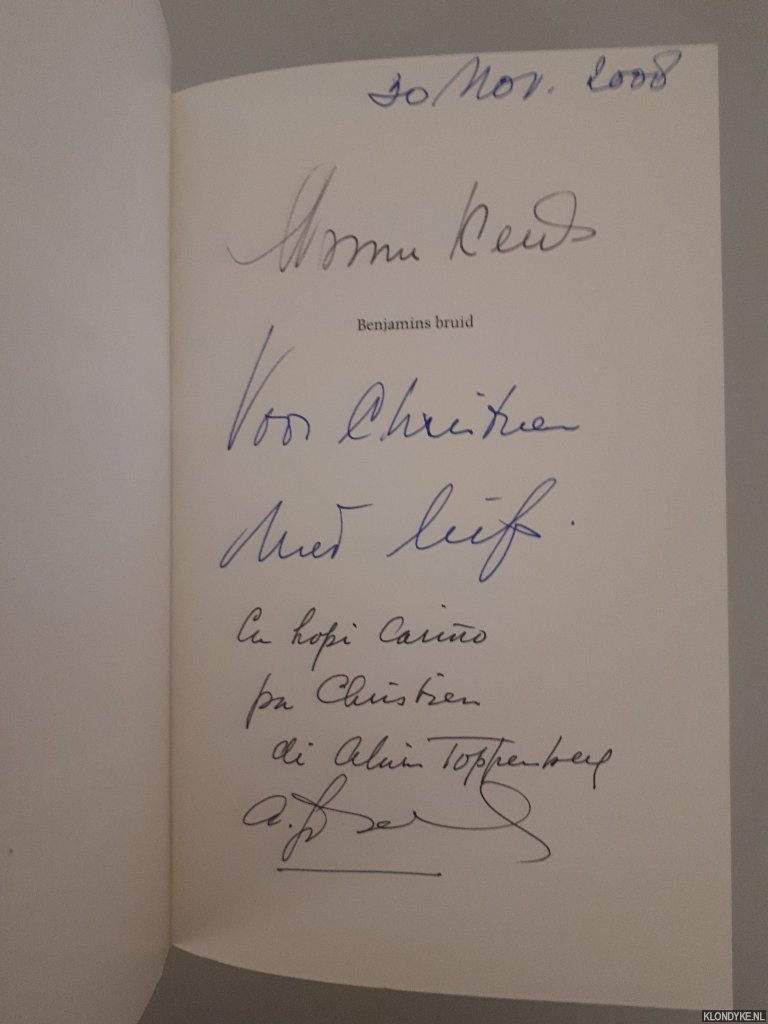 30 Nov. 2008
Benjamins bruid
Voor Christien
Met liefs.
Cu hopi Cariño
pa Christien
di Toppenberg
KLONDYKE.NL